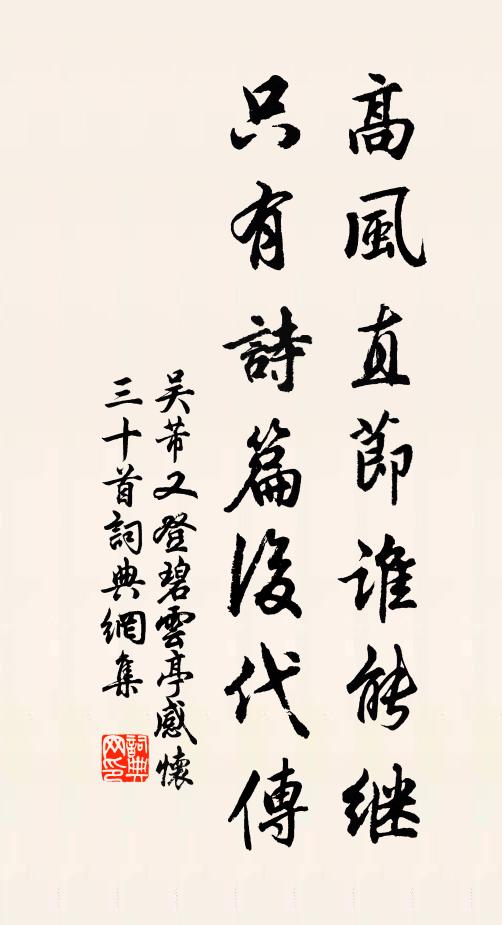 高風直節誰能継
只有詩篇後代傳
吴芾又登碧雲亭感懷
三十首詞典網集
詞典
网印